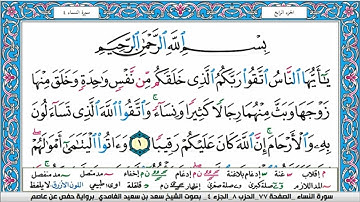 الجزء الرابع
سورة النساء ٤
بِسْمِ ٱللَّهِ ٱلرَّحْمَٰنِ ٱلرَّحِيمِ
يَٰٓأَيُّهَا ٱلنَّاسُ ٱتَّقُوا۟ رَبَّكُمُ ٱلَّذِى خَلَقَكُم مِّن نَّفْسٍ وَٰحِدَةٍ وَخَلَقَ مِنْهَا
زَوْجَهَا وَبَثَّ مِنْهُمَا رِجَالًا كَثِيرًا وَنِسَآءً ۚ وَٱتَّقُوا۟ ٱللَّهَ ٱلَّذِى تَسَآءَلُونَ
بِهِۦ وَٱلْأَرْحَامَ ۚ إِنَّ ٱللَّهَ كَانَ عَلَيْكُمْ رَقِيبًا ١ وَءَاتُوا۟ ٱلْيَتَٰمَىٰٓ أَمْوَٰلَهُمْ ۖ
سورة النساء . الصفحة ٧٧ الحزب ٨ . الجزء ٤ . بصوت الشيخ سعد بن سعيد الغامدي . برواية حفص عن عاصم